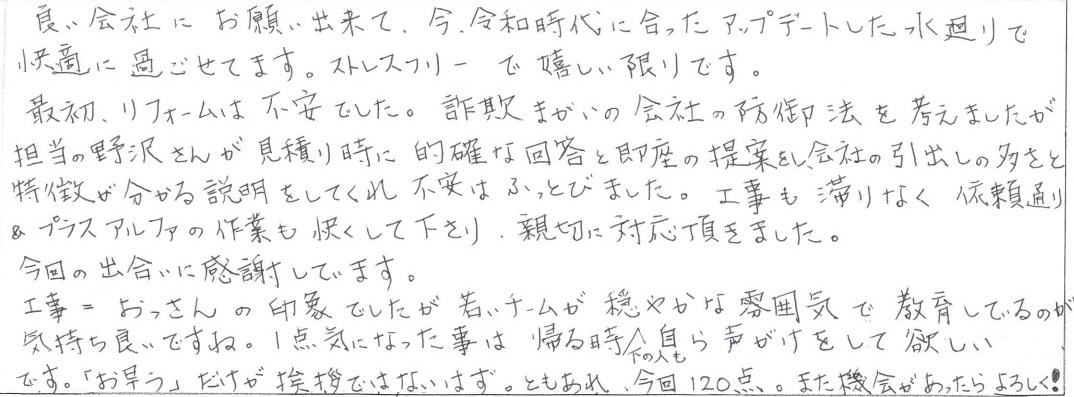 良い会社にお願い出来て、今、令和時代に合ったアップデートした水廻りで
快適に過ごせてます。ストレスフリーで嬉しい限りです。
最初、リフォームは不安でした。詐欺まがいの会社の防御法を考えましたが
担当の野沢さんが見積り時に的確な回答と即座の提案をし、会社の引出しの多さと
特徴が分かる説明をしてくれ不安はふっとびました。工事も滞りなく依頼通り
&プラスアルファの作業も快くして下さり、親切に対応頂きました。
今回の出合いに感謝しています。
工事=おっさんの印象でしたが若いチームが穏やかな雰囲気で教育してるのが
気持ち良いですね。1点気になった事は帰る時下の人も自ら声がけをして欲しい
です。「お早う」だけが挨拶ではないはず。ともあれ、今回120点、。また機会があったらよろしく!